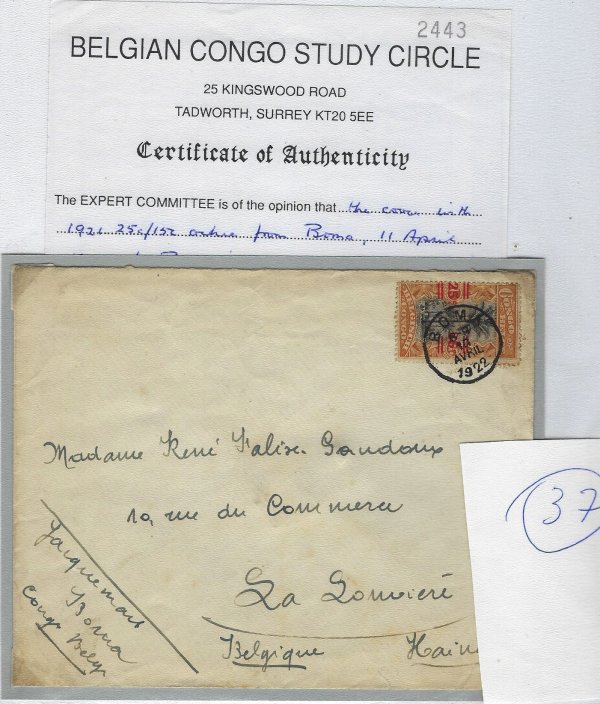 2443
BELGIAN CONGO STUDY CIRCLE
25 KINGSWOOD ROAD
TADWORTH, SURREY KT20 5EE
Certificate of Authenticity
The EXPERT COMMITTEE is of the opinion that the cover with
1921 25c/15c ochre from Boma, 11 April
25
CONGO
BOMA
11
AVRIL
1922
Madame René Falise-Gandoux
10, rue du Commerce
La Louvière
Belgique Hain
Jacquemart
Boma
Congo Belge
37